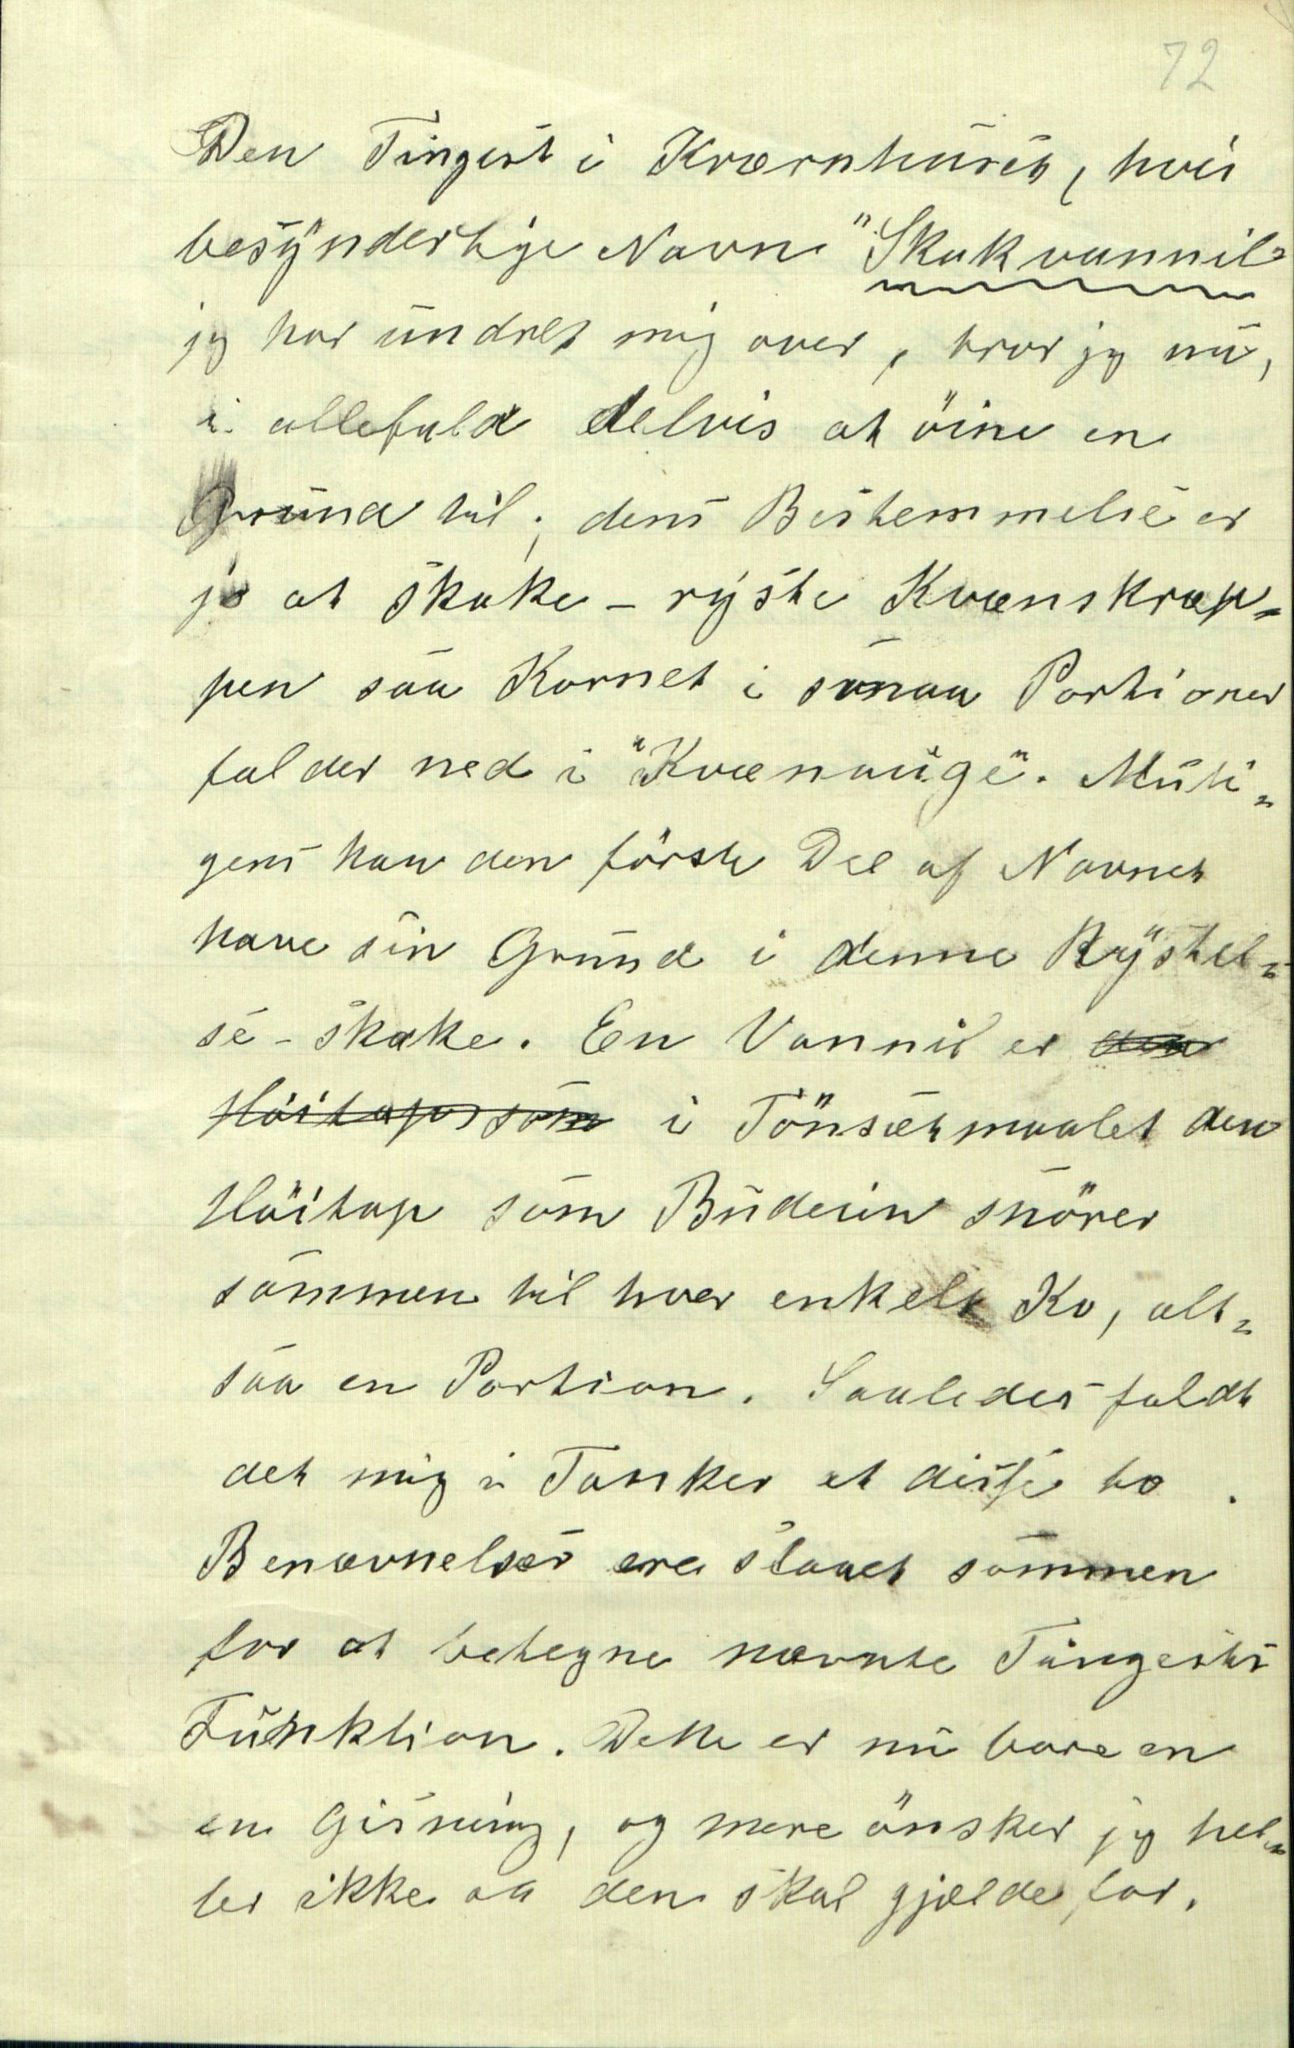 72
Den Tingest i Kværnhuset, hvis
besynderlige Navn "Skakvannil"
jeg har undret mig over, tror jeg nu,
i allefald delvis at öine en
Grund til; dens Bestemmelse er
jo at skake - ryste Kvænskræp=
pen saa Kornet i smaa Portioner
falder ned i "Kvænauge". Muli=
gens kan den förste Del af Navnet
have sin Grund i denne Rystel=
se - skake. En Vannil er den
Höitap som i Tönsetmaalet den
Höitap som Budeien snörer
sammen til hver enkelt Ko, alt=
saa en Portion. Saaledes faldt
det mig i Tanker at disse to
Benævnelser ere slaaet sammen
for at betegne nævnte Tingests
Funktion. Dette er nu bare en
en Gisning, og mere önsker jeg hel=
ler ikke at den skal gjælde for.